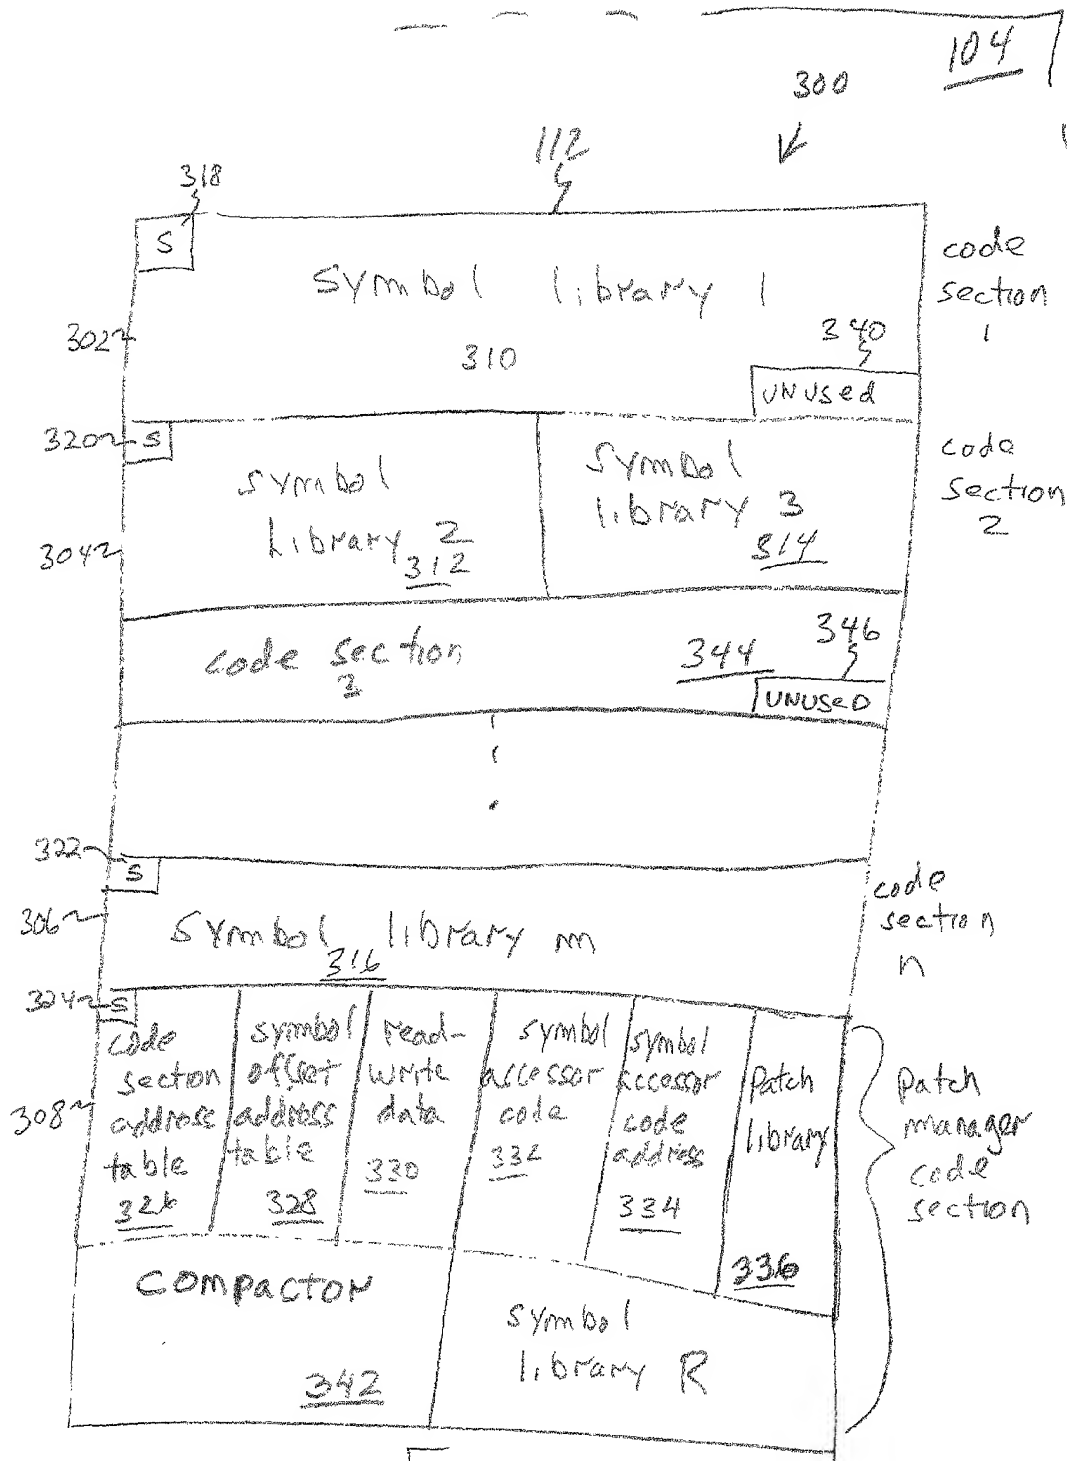 104
300
112
318
S
symbol library 1
code
section
1
302
310
340
UNUSed
320
S
symbol
library 2
312
symbol
library 3
314
code
section
2
304
code section
3
344
346
UNUSeD
322
S
306
symbol library m
316
code
section
n
324
S
308
code
section
address
table
326
symbol
offset
address
table
328
read-
write
data
330
symbol
accessor
code
332
symbol
accessor
code
address
334
Patch
library
336
Patch
manager
code
section
compactor
342
symbol
library R